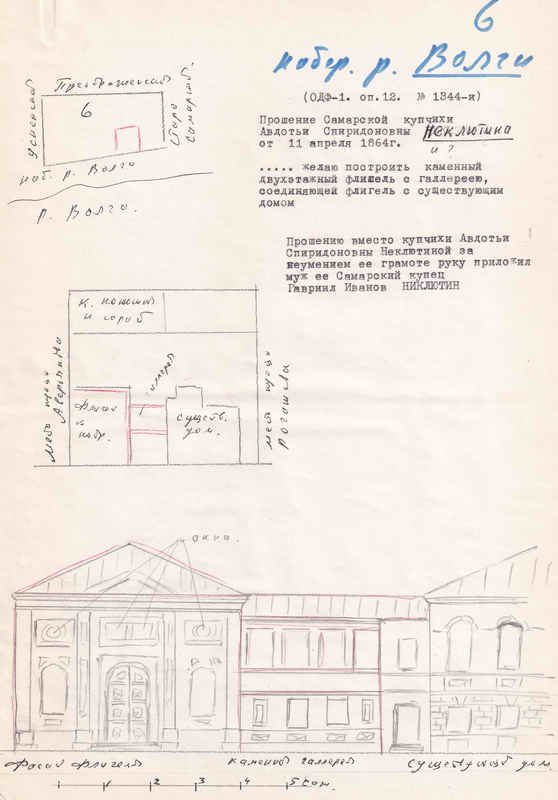 6
набер. р. Волги
(ОДФ-1. оп.12. № 1344-и)
Прошение Самарской купчихи
Авдотьи Спиридоновны Неклютина
от 11 апреля 1864г. и ?
..... желаю построить каменный
двухэтажный флигель с галлереею,
соединяющей флигель с существующим
домом
Прошению вместо купчихи Авдотьи
Спиридоновны Неклютиной за
неумением ее грамоте руку приложил
муж ее Самарский купец
Гавриил Иванов НИКЛЮТИН
Преображенская
Успенская
6
Старо
Самарск.
наб. р. Волги
р. Волга.
к. конюшня
и сарай
место
Аверкина
галлерея
существ.
дом.
место
окна.
Фасад флигеля
каменной галлереи
существующий дом.
1 2 3 4 5 саж.